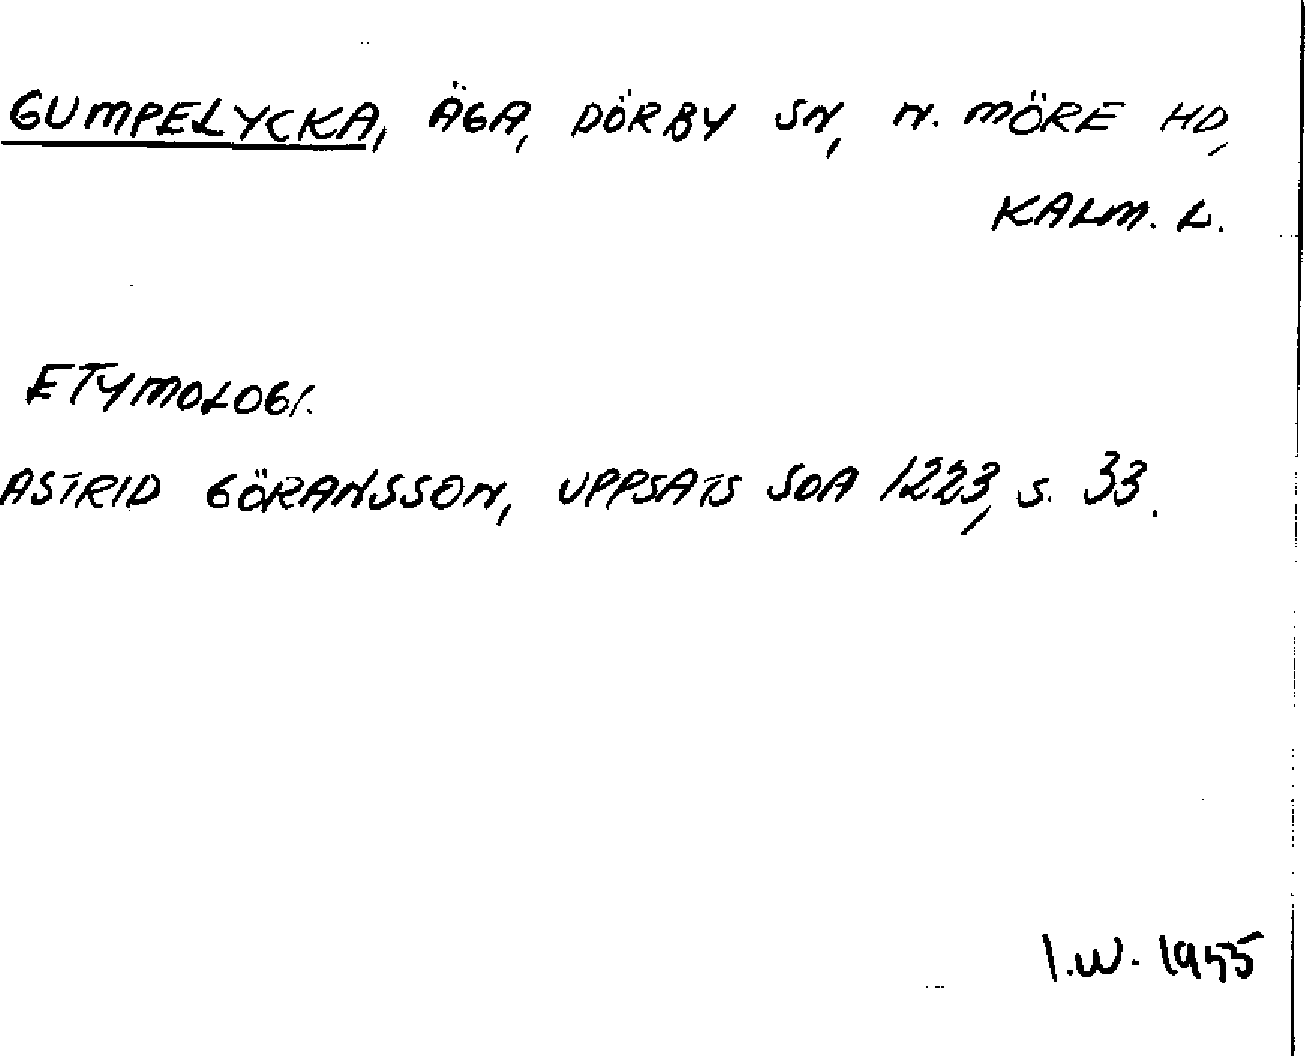 GUMPELYCKA, ÄGA, DÖRBY SN, N. MÖRE HD,
KALM. L.
ETYMOLOGI.
ASTRID GÖRANSSON, UPPSATS SOA 1223, S. 33.
I.W. 1955